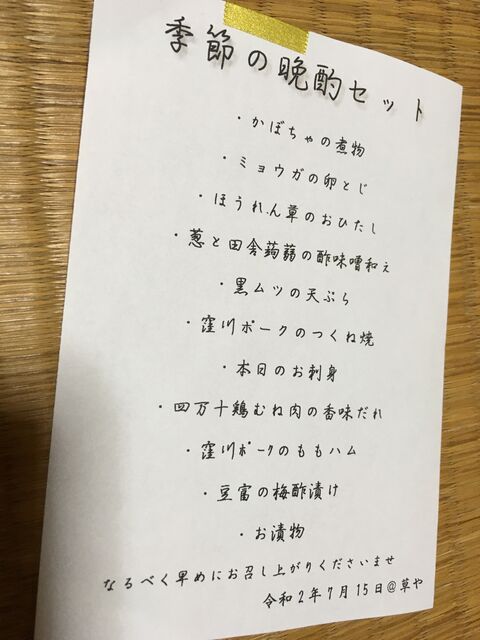 季節の晩酌セット
・かぼちゃの煮物
・ミョウガの卵とじ
・ほうれん草のおひたし
・葱と田舎蒟蒻の酢味噌和え
・黒ムツの天ぷら
・窪川ポークのつくね焼
・本日のお刺身
・四万十鶏むね肉の香味だれ
・窪川ポークのももハム
・豆富の梅酢漬け
・お漬物
なるべく早めにお召し上がりくださいませ
令和2年7月15日@草や